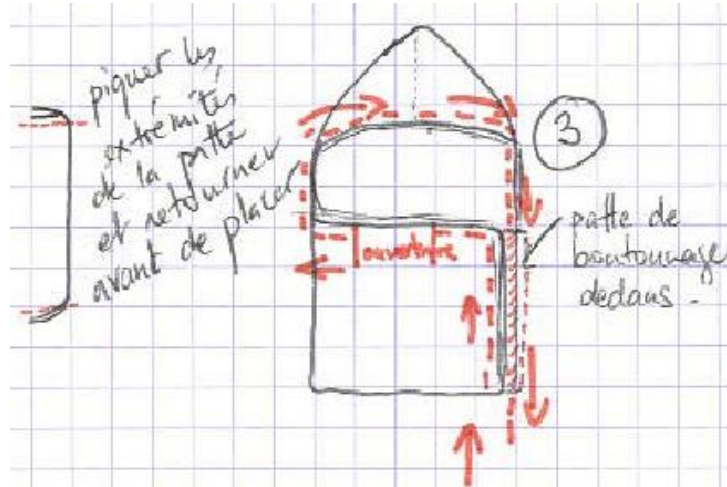 piquer les
extrémités
de la patte
et retourner
avant de placer
3
ouverture
patte de
boutonnage
dedans -